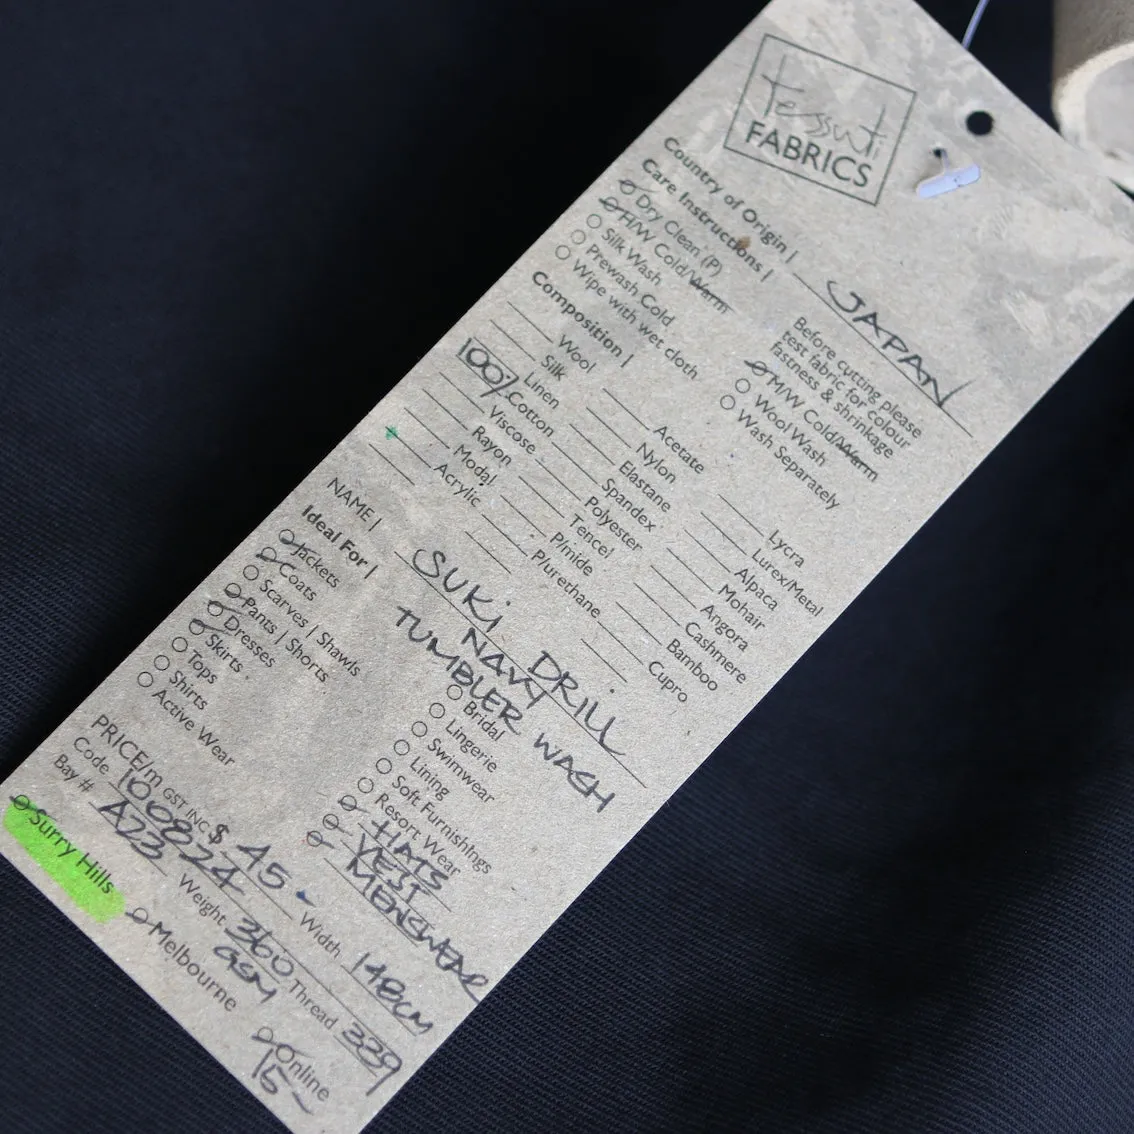 tessuti
FABRICS
Country of Origin | JAPAN
Care Instructions |
Dry Clean (P)
H/W Cold/Warm
Silk Wash
Prewash Cold
Wipe with wet cloth
Before cutting please
test fabric for colour
fastness & shrinkage
M/W Cold/Warm
Wool Wash
Wash Separately
Composition |
Wool
Silk
Linen
100% Cotton
Viscose
Rayon
Modal
Acrylic
Acetate
Nylon
Elastane
Spandex
Polyester
Tencel
P/mide
P/urethane
Lycra
Lurex/Metal
Alpaca
Mohair
Angora
Cashmere
Bamboo
Cupro
NAME | SUKi DRILL
NAVY
TUMBLER WASH
Ideal For |
Jackets
Coats
Scarves | Shawls
Pants | Shorts
Dresses
Skirts
Tops
Shirts
Active Wear
Bridal
Lingerie
Swimwear
Lining
Soft Furnishings
Resort Wear
HATS
VEST
MENSWEAR
PRICE/m GST INC $ 45-
Width 148CM
Code 100824
Weight 360 GSM
Thread 339
Bay # A23
Surry Hills
Melbourne
Online
15-